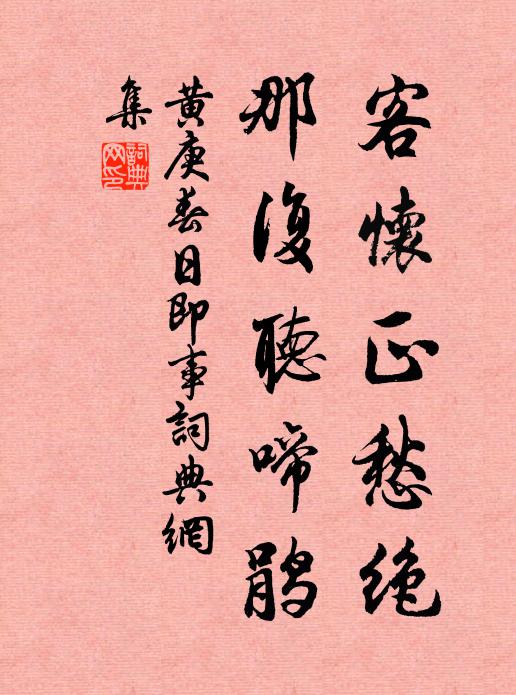 客懷正愁絶
那復聽啼鵑
黃庚春日即事詞典網
集
詞典網印